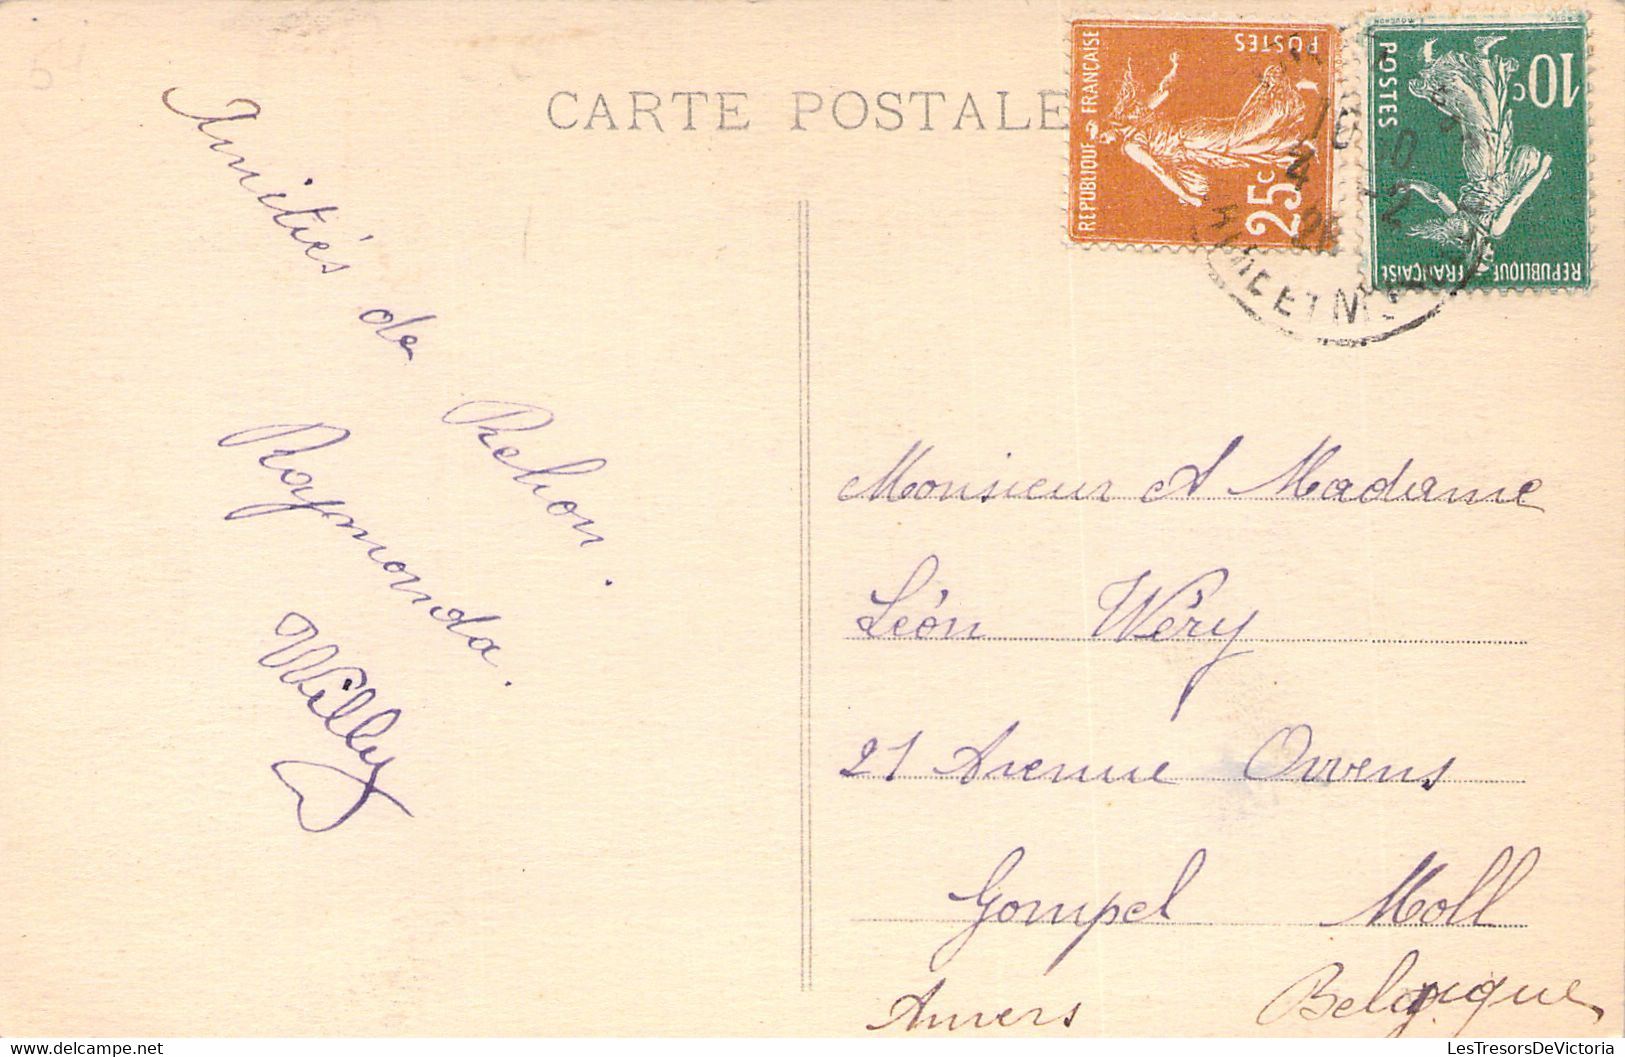 CARTE POSTALE
Amitiés de Rehon.
Raymonda.
Willy
REPUBLIQUE FRANÇAISE
POSTES
25c
10c
POSTES
REPUBLIQUE FRANÇAISE
MEURTHE ET M
Monsieur et Madame
Léon Wéry
21 Avenue Owens
Gompel Moll
Anvers Belgique
LesTresorsDeVictoria